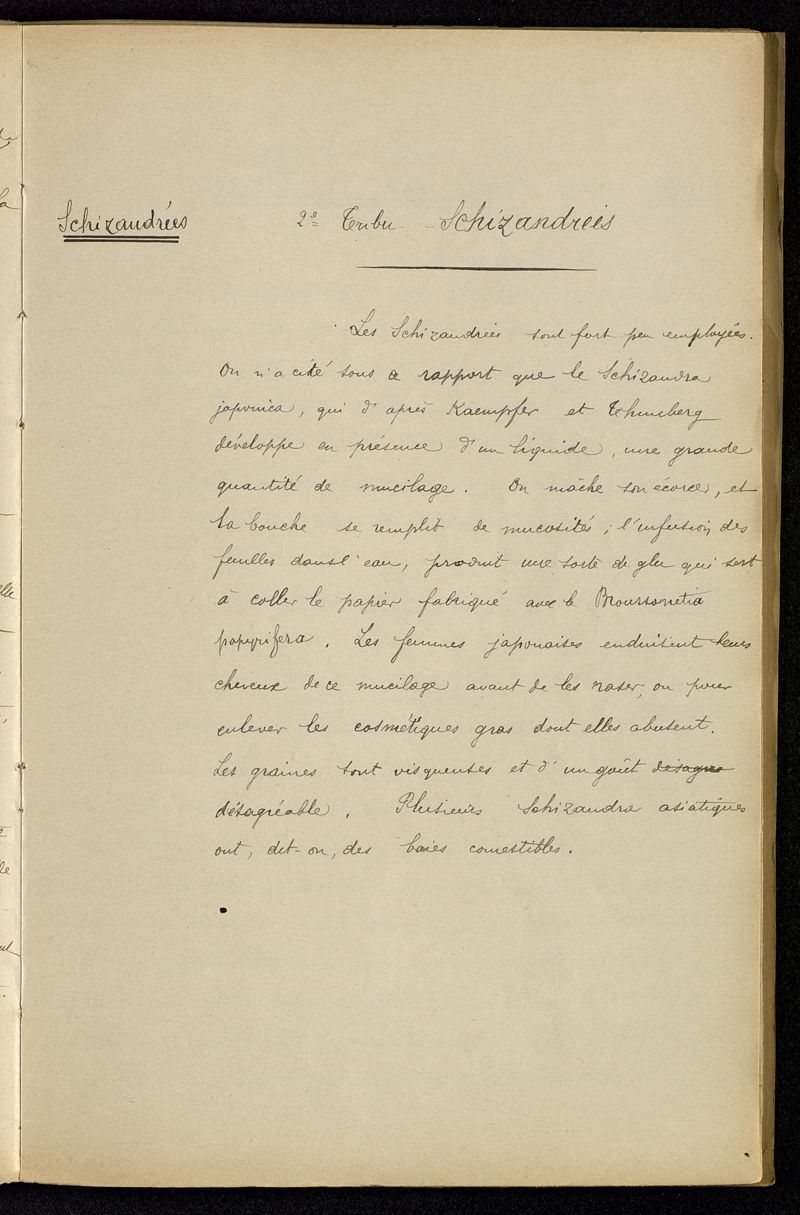 Schizandrées
2e Tribu. - Schizandrées
Les Schizandrées sont fort peu employées.
On n'a cité sous ce rapport que le Schizandra
japonica, qui d'après Kaempfer et Thunberg
développe en présence d'un liquide, une grande
quantité de mucilage. On mâche son écorce, et
la bouche se remplit de mucosités; l'infusion des
feuilles dans l'eau, produit une sorte de glu qui sert
à coller le papier fabriqué avec le Broussonetia
papyrifera. Les femmes japonaises enduisent leurs
cheveux de ce mucilage avant de les raser, ou pour
enlever les cosmétiques gras dont elles abusent.
Les graines sont visqueuses et d'un goût désagré
désagréable. Plusieurs Schizandra asiatiques
ont, dit-on, des baies comestibles.